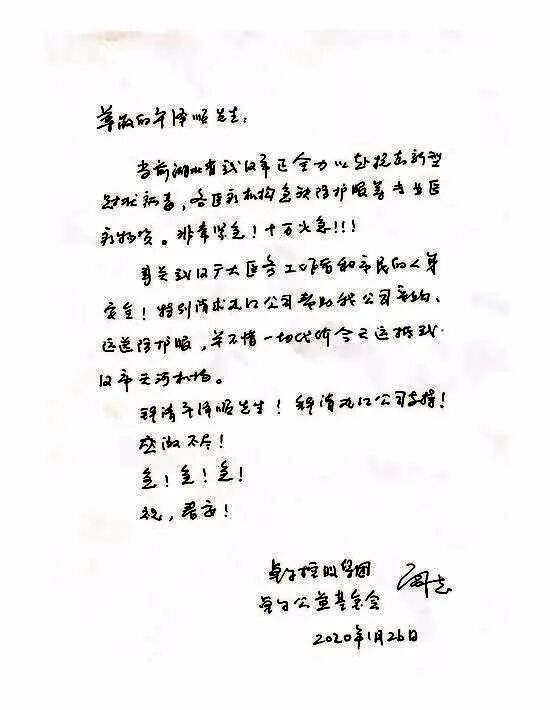 尊敬的泽顺先生:
当前湖北省武汉市正全力以赴抗击新型
冠状病毒,各医疗机构急缺防护服等专业医
疗物资。非常紧急!十万火急!!!
事关武汉广大医务工作者和市民的人身
安全!特别请求公司帮助我公司采购、
运送防护服,并不惜一切代价今天运抵武
汉市天河机场。
拜请泽顺先生!拜请公司支持!
感激不尽!
急!急!急!
祝,君安!
卓尔控股集团 阎志
卓尔公益基金会
2020年1月26日